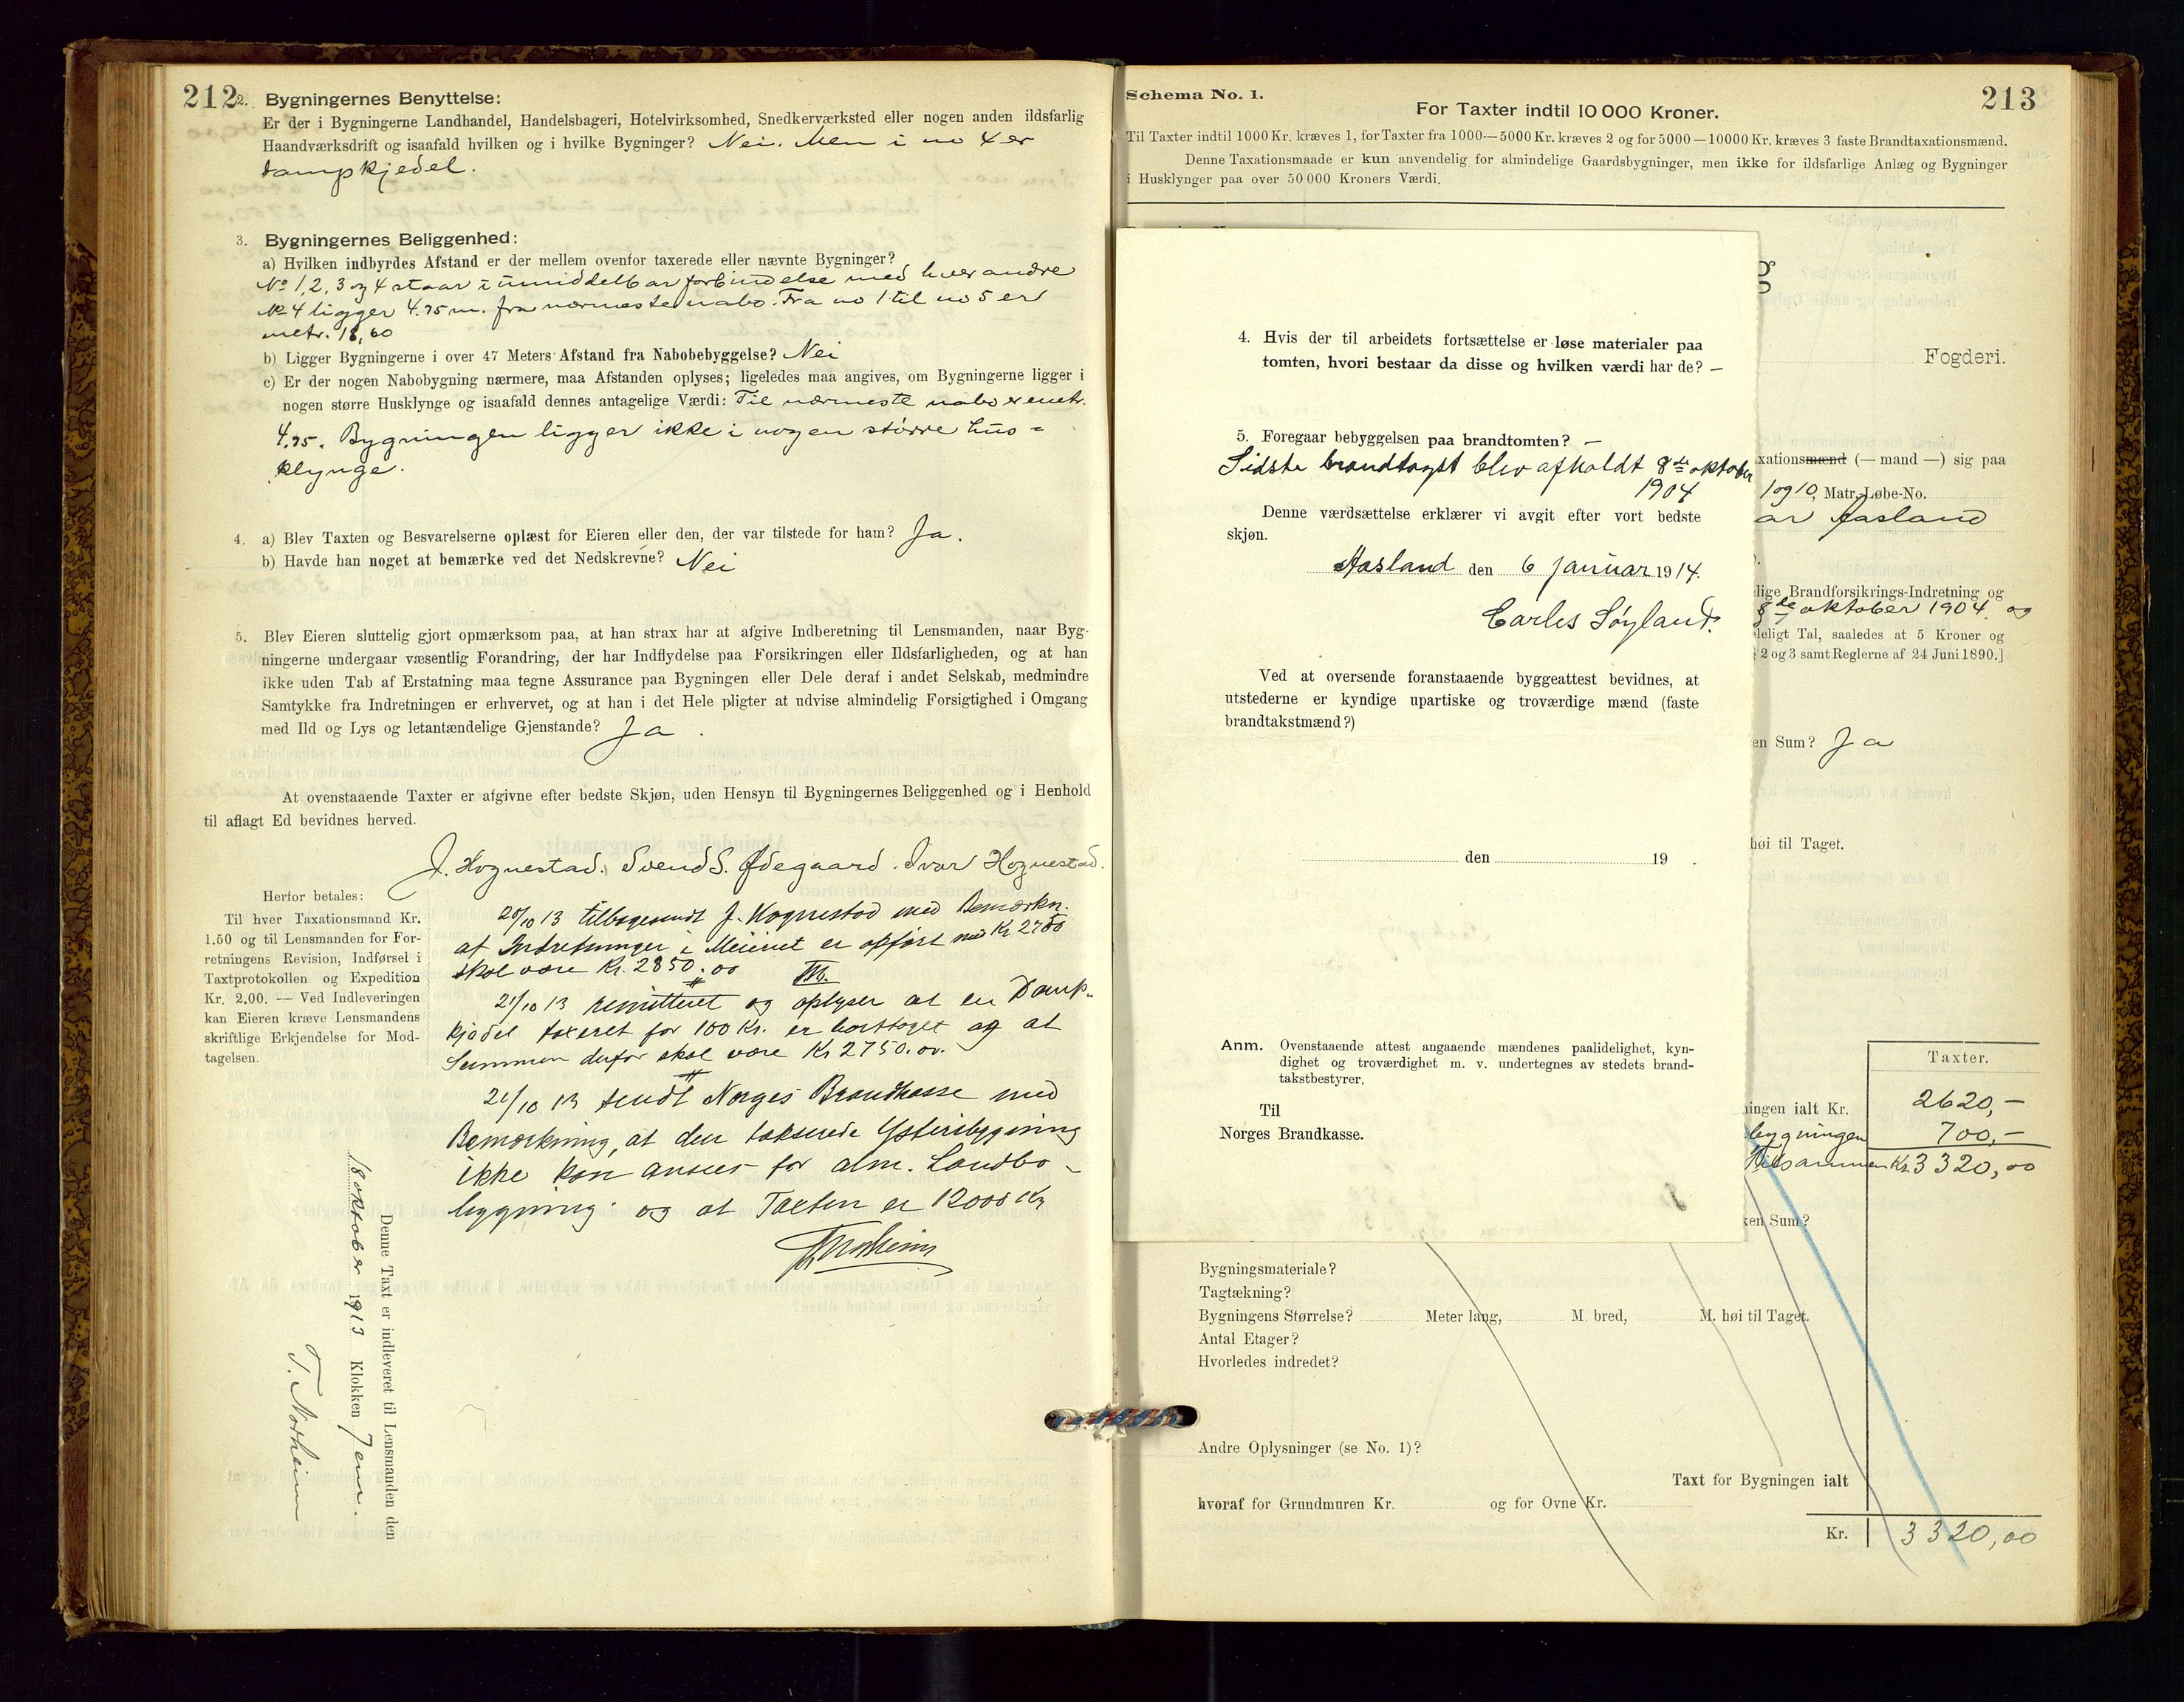 212
2. Bygningernes Benyttelse:
Er der i Bygningerne Landhandel, Handelsbageri, Hotelvirksomhed, Snedkerværksted eller nogen anden ildsfarlig
Haandværksdrift og isaafald hvilken og i hvilke Bygninger? Nei. Men i no 4 er
dampkjedel.
3. Bygningernes Beliggenhed:
a) Hvilken indbyrdes Afstand er der mellem ovenfor taxerede eller nævnte Bygninger?
No 1, 2, 3 og 4 staar i umiddelbar forbindelse med hverandre
No 4 ligger 4.75 m. fra nærmeste nabo. Fra no 1 til no 5 er
metr. 18,60
b) Ligger Bygningerne i over 47 Meters Afstand fra Nabobebyggelse? Nei
c) Er der nogen Nabobygning nærmere, maa Afstanden oplyses; ligeledes maa angives, om Bygningerne ligger i
nogen større Husklynge og isaafald dennes antagelige Værdi: Til nærmeste nabo er metr.
4.75. Bygningen ligger ikke i nogen større hus=
klynge.
4. a) Blev Taxten og Besvarelserne oplæst for Eieren eller den, der var tilstede for ham? Ja.
b) Havde han noget at bemærke ved det Nedskrevne? Nei
5. Blev Eieren sluttelig gjort opmærksom paa, at han strax har at afgive Indberetning til Lensmanden, naar Byg-
ningerne undergaar væsentlig Forandring, der har Indflydelse paa Forsikringen eller Ildsfarligheden, og at han
ikke uden Tab af Erstatning maa tegne Assurance paa Bygningen eller Dele deraf i andet Selskab, medmindre
Samtykke fra Indretningen er erhvervet, og at han i det Hele pligter at udvise almindelig Forsigtighed i Omgang
med Ild og Lys og letantændelige Gjenstande? Ja.
At ovenstaaende Taxter er afgivne efter bedste Skjøn, uden Hensyn til Bygningernes Beliggenhed og i Henhold
til aflagt Ed bevidnes herved.
J. Hognestad. Svend S. Ødegaard. Ivar Hognestad.
Herfor betales:
Til hver Taxationsmand Kr.
1.50 og til Lensmanden for For-
retningens Revision, Indførsel i
Taxtprotokollen og Expedition
Kr. 2.00. — Ved Indleveringen
kan Eieren kræve Lensmandens
skriftlige Erkjendelse for Mod-
tagelsen.
20/10 13 tilbagesendt J. Hognestad med Bemærkn.
at Indretninger i Meieriet er opført med Kr 2750
skal være Kr. 2850.00 Th.
21/10 13 remitteret og oplyser at en Damp-
kjedel taxeret for 100 Kr. er borttaget og at
Summen derfor skal være Kr 2750.00.
21/10 13 sendt Norges Brandkasse med
Bemærkning, at den takserede Ysteribygning
ikke kan ansees for alm. Landbo-
bygning og at Taxten er 12000 Kr
T. Norheim
Denne Taxt er indleveret til Lensmanden den
18 oktober 1913 Klokken 7 em.
T. Norheim
Schema No. 1.
213
For Taxter indtil 10 000 Kroner.
Til Taxter indtil 1000 Kr. kræves 1, for Taxter fra 1000—5000 Kr. kræves 2 og for 5000—10000 Kr. kræves 3 faste Brandtaxationsmænd.
Denne Taxationsmaade er kun anvendelig for almindelige Gaardsbygninger, men ikke for ildsfarlige Anlæg og Bygninger
i Husklynger paa over 50 000 Kroners Værdi.
4. Hvis der til arbeidets fortsættelse er løse materialer paa
tomten, hvori bestaar da disse og hvilken værdi har de? —
5. Foregaar bebyggelsen paa brandtomten? —
Sidste brandtagst blev afholdt 8de oktober
1904
Denne værdsættelse erklærer vi avgit efter vort bedste
skjøn.
Aasland den 6 januar 1914.
Carles Søyland.
Ved at oversende foranstaaende byggeattest bevidnes, at
utstederne er kyndige upartiske og troværdige mænd (faste
brandtakstmænd?)
den 19 .
Anm. Ovenstaaende attest angaaende mændenes paalidelighet, kyn-
dighet og troværdighet m. v. undertegnes av stedets brand-
takstbestyrer.
Til
Norges Brandkasse.
g
Fogderi.
xationsmænd (— mand —) sig paa
1 og 10, Matr. Løbe-No.
ar Aasland
lige Brandforsikrings-Indretning og
8de oktober 1904 og
leligt Tal, saaledes at 5 Kroner og
2 og 3 samt Reglerne af 24 Juni 1890.]
en Sum? Ja
høi til Taget.
Taxter.
ningen ialt Kr. 2620,—
bygningen 700,—
Tilsammen Kr. 3320,00
ken Sum?
Bygningsmateriale?
Tagtækning?
Bygningens Størrelse? Meter lang, M. bred, M. høi til Taget.
Antal Etager?
Hvorledes indredet?
Andre Oplysninger (se No. 1)?
Taxt for Bygningen ialt
hvoraf for Grundmuren Kr. og for Ovne Kr.
Kr. 3320,00